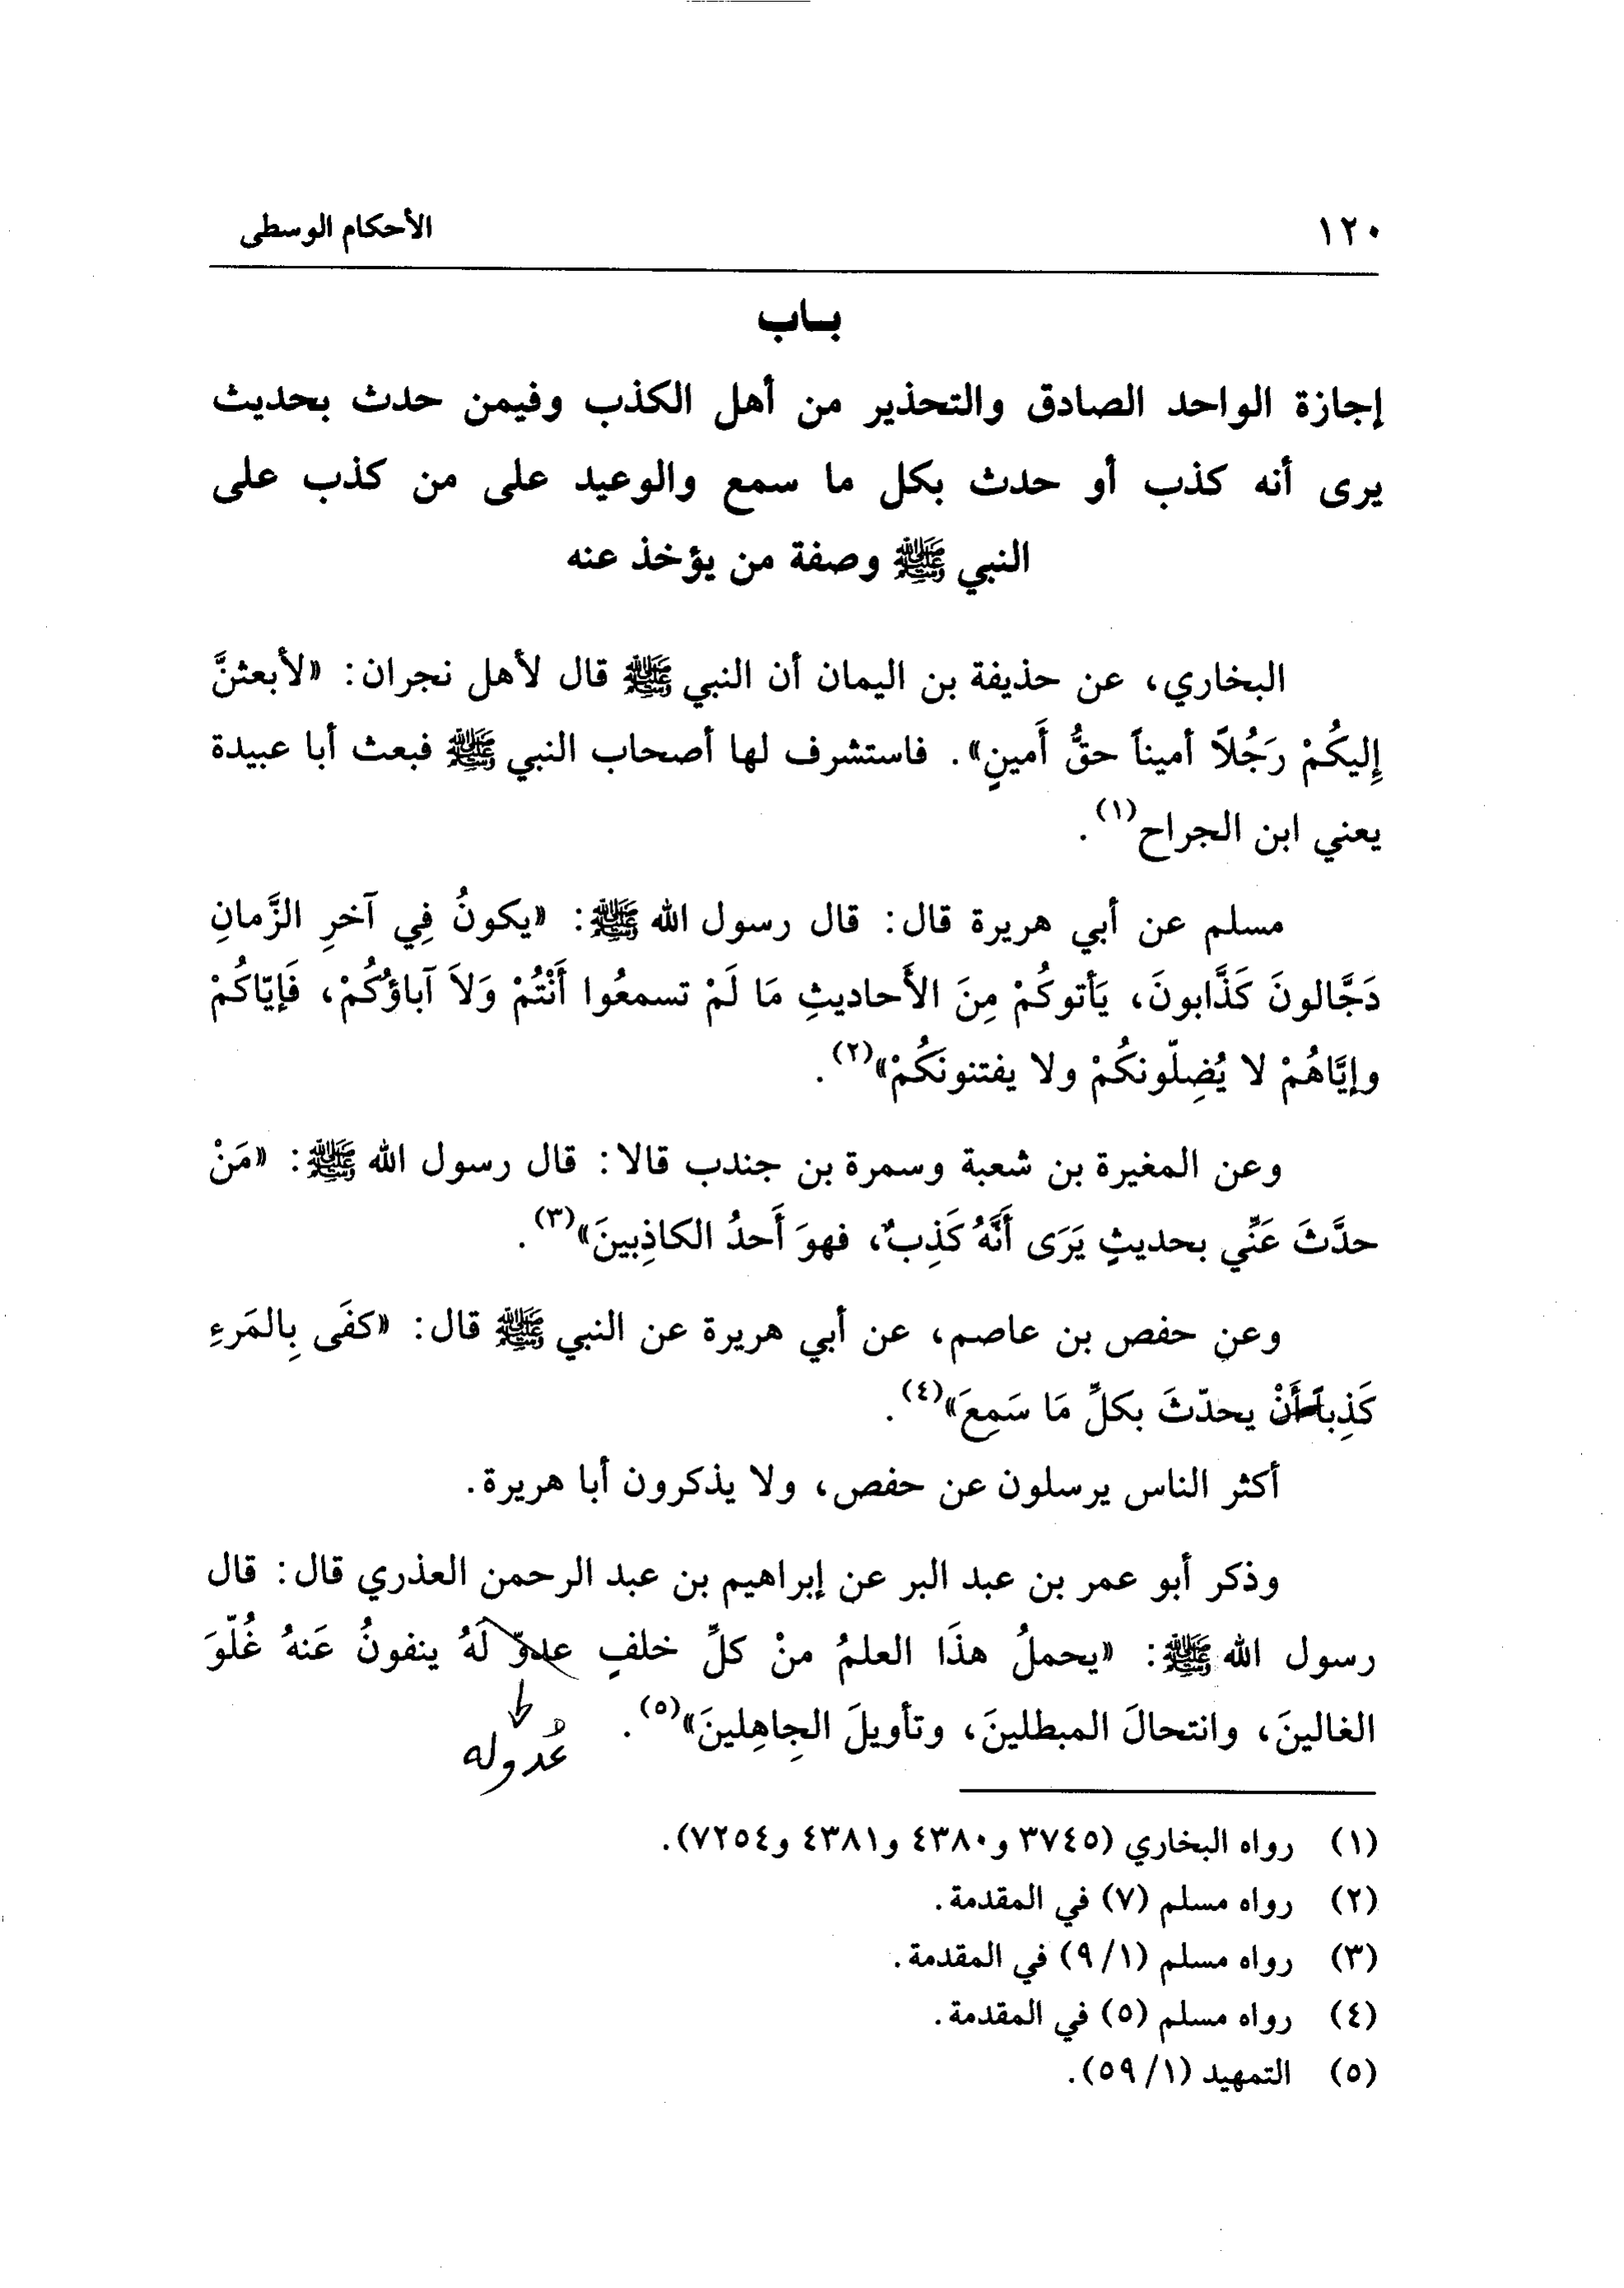 ١٢٠ الأحكام الوسطى
بـاب
إجازة الواحد الصادق والتحذير من أهل الكذب وفيمن حدث بحديث
يرى أنه كذب أو حدث بكل ما سمع والوعيد على من كذب على
النبي ﷺ وصفة من يؤخذ عنه
البخاري، عن حذيفة بن اليمان أن النبي ﷺ قال لأهل نجران: «لأبعثنَّ
إِليكُمْ رَجُلاً أميناً حقُّ أَمينٍ». فاستشرف لها أصحاب النبي ﷺ فبعث أبا عبيدة
يعني ابن الجراح(١).
مسلم عن أبي هريرة قال: قال رسول الله ﷺ: «يكونُ فِي آخرِ الزَّمانِ
دَجَّالونَ كَذَّابونَ، يَأتوكُمْ مِنَ الأَحاديثِ مَا لَمْ تسمعُوا أَنْتُمْ وَلاَ آباؤُكُمْ، فَإيّاكُمْ
وإيَّاهُمْ لا يُضِلّونكُمْ ولا يفتنونَكُمْ»(٢).
وعن المغيرة بن شعبة وسمرة بن جندب قالا: قال رسول الله ﷺ: «مَنْ
حدَّثَ عَنِّي بحديثٍ يَرَى أَنَّهُ كَذِبٌ، فهوَ أَحدُ الكاذِبينَ»(٣).
وعن حفص بن عاصم، عن أبي هريرة عن النبي ﷺ قال: «كفَى بِالمَرءِ
كَذِباً أَنْ يحدّثَ بكلِّ مَا سَمِعَ»(٤).
أكثر الناس يرسلون عن حفص، ولا يذكرون أبا هريرة.
وذكر أبو عمر بن عبد البر عن إبراهيم بن عبد الرحمن العذري قال: قال
رسول الله ﷺ: «يحملُ هذَا العلمُ منْ كلِّ خلفٍ عدوّ لَهُ ينفونُ عَنهُ غُلّوَ
الغالينَ، وانتحالَ المبطلينَ، وتأويلَ الجِاهِلينَ»(٥).
عُدوله
(١) رواه البخاري (٣٧٤٥ و٤٣٨٠ و٤٣٨١ و٧٢٥٤).
(٢) رواه مسلم (٧) في المقدمة.
(٣) رواه مسلم (٩/١) في المقدمة.
(٤) رواه مسلم (٥) في المقدمة.
(٥) التمهيد (٥٩/١).